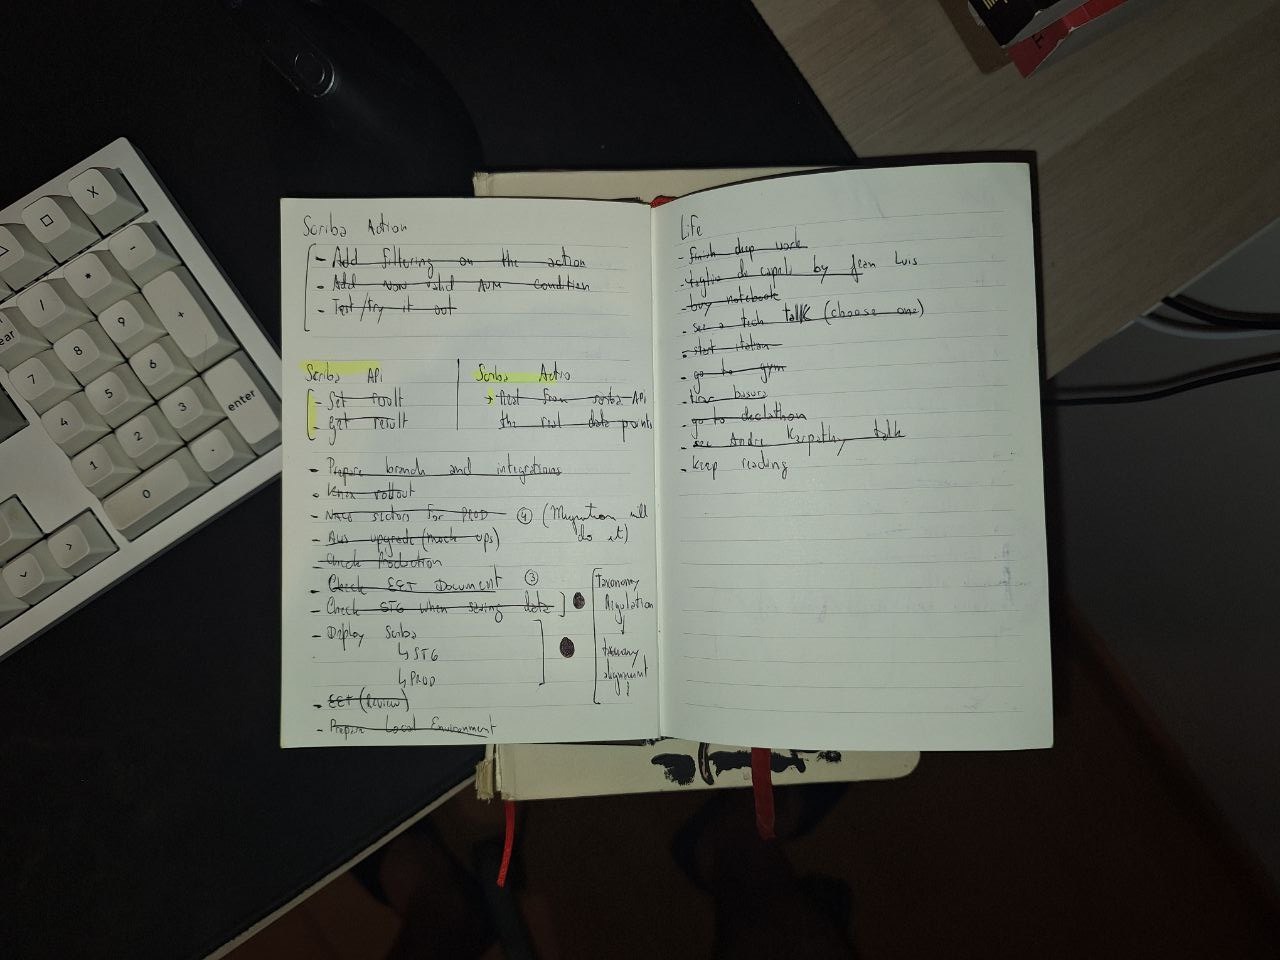 Scriba Action
- Add filtering on the action
- Add non valid AUM condition
- Test/try it out
Scriba APi
- Set result
- get result
Scriba Actio
- from scriba APi
the real data points
- Prepare branch and integrations
- Knox rollout
- sectors for PROD ④ (Migration will
do it)
- Aws upgrade (mock ups)
- Check Production
- Check EET Document ③
- Check STG when seeing data
- Deploy Scriba
↳ STG
↳ PROD
- EET (Review)
- Prepare Local Environment
taxonomy
Regulation
↓
taxonomy
alignment
Life
- finish deep work
- taglio de capeli by Jean Luis
- buy notebook
- see a tech talk (choose one)
- start
- go to gym
- basura
- go to decathlon
- see Andre Karpathy talk
- keep reading
X
-
*
+
/
9
8
7
6
5
4
3
2
1
0
.
enter
ear
>